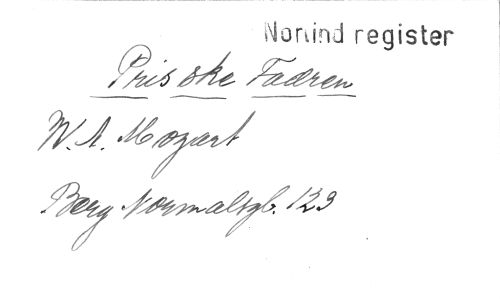 Nortind register
Pris ske Faderen
W. A. Mozart
Berg Normalsgb. 123